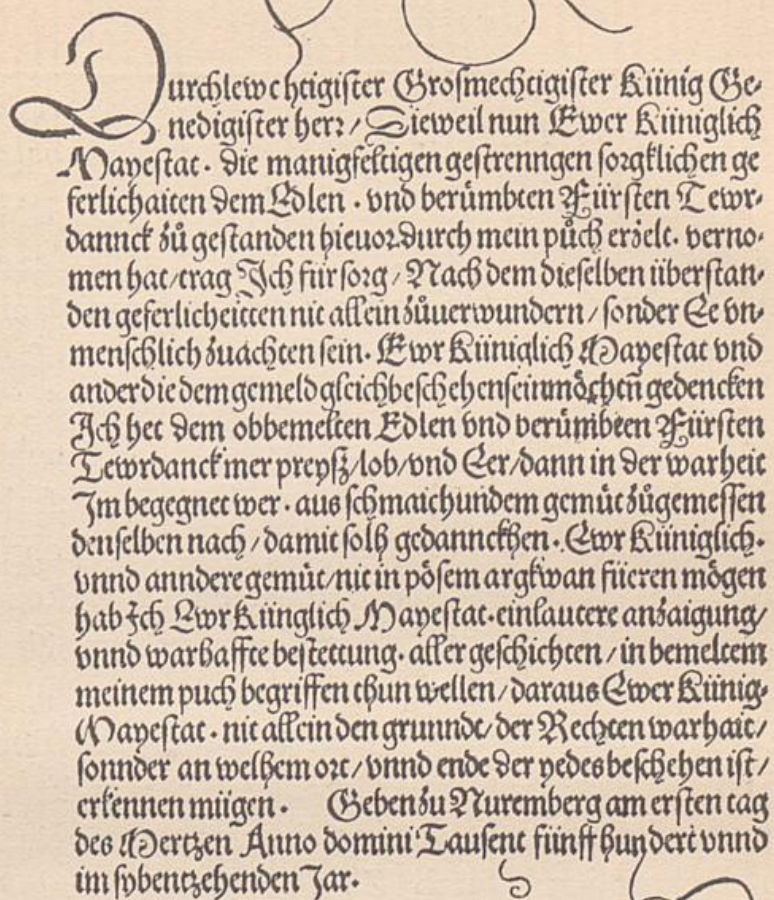 Durchlewchtigister Grosmechtigister Künig Ge-
nedigister herr / Dieweil nun Ewer Küniglich
Mayestat . die manigfeltigen gestrenngen sorgklichen ge
ferlichaiten dem Edlen . vnd berümbten Fürsten Tewr-
dannck zů gestanden hieuor durch mein půch erzelt . verno-
men hat / trag Ich fürsorg / Nach dem dieselben überstan-
den geferlicheitten nit allein zůuerwundern / sonder Ee vn-
menschlich zuachten sein . Ewr Küniglich Mayestat vnd
ander die dem gemeld gleich beschehen sein möchten gedencken
Ich het dem obbemelten Edlen vnd berümbten Fürsten
Tewrdanck mer preysz / lob / vnd Eer / dann in der warheit
Im begegnet wer . aus schmaichundem gemüt zůgemessen
denselben nach / damit solh gedannckhen . Ewr Küniglich .
vnnd anndere gemüt / nit in pösem argkwan füeren mögen
hab Ich Ewr Künglich Mayestat . ein lautere anzaigung /
vnnd warhaffte bestettung . aller geschichten / in bemeltem
meinem puch begriffen thun wellen / daraus Ewer Künig-
Mayestat . nit allein den grunndt / der Rechten warhait /
sonnder an welhem ort / vnnd ende der yedes beschehen ist /
erkennen mügen . Geben zu Nuremberg am ersten tag
des Mertzen Anno domini Tausent fünff hundert vnnd
im sybentzehenden Jar .